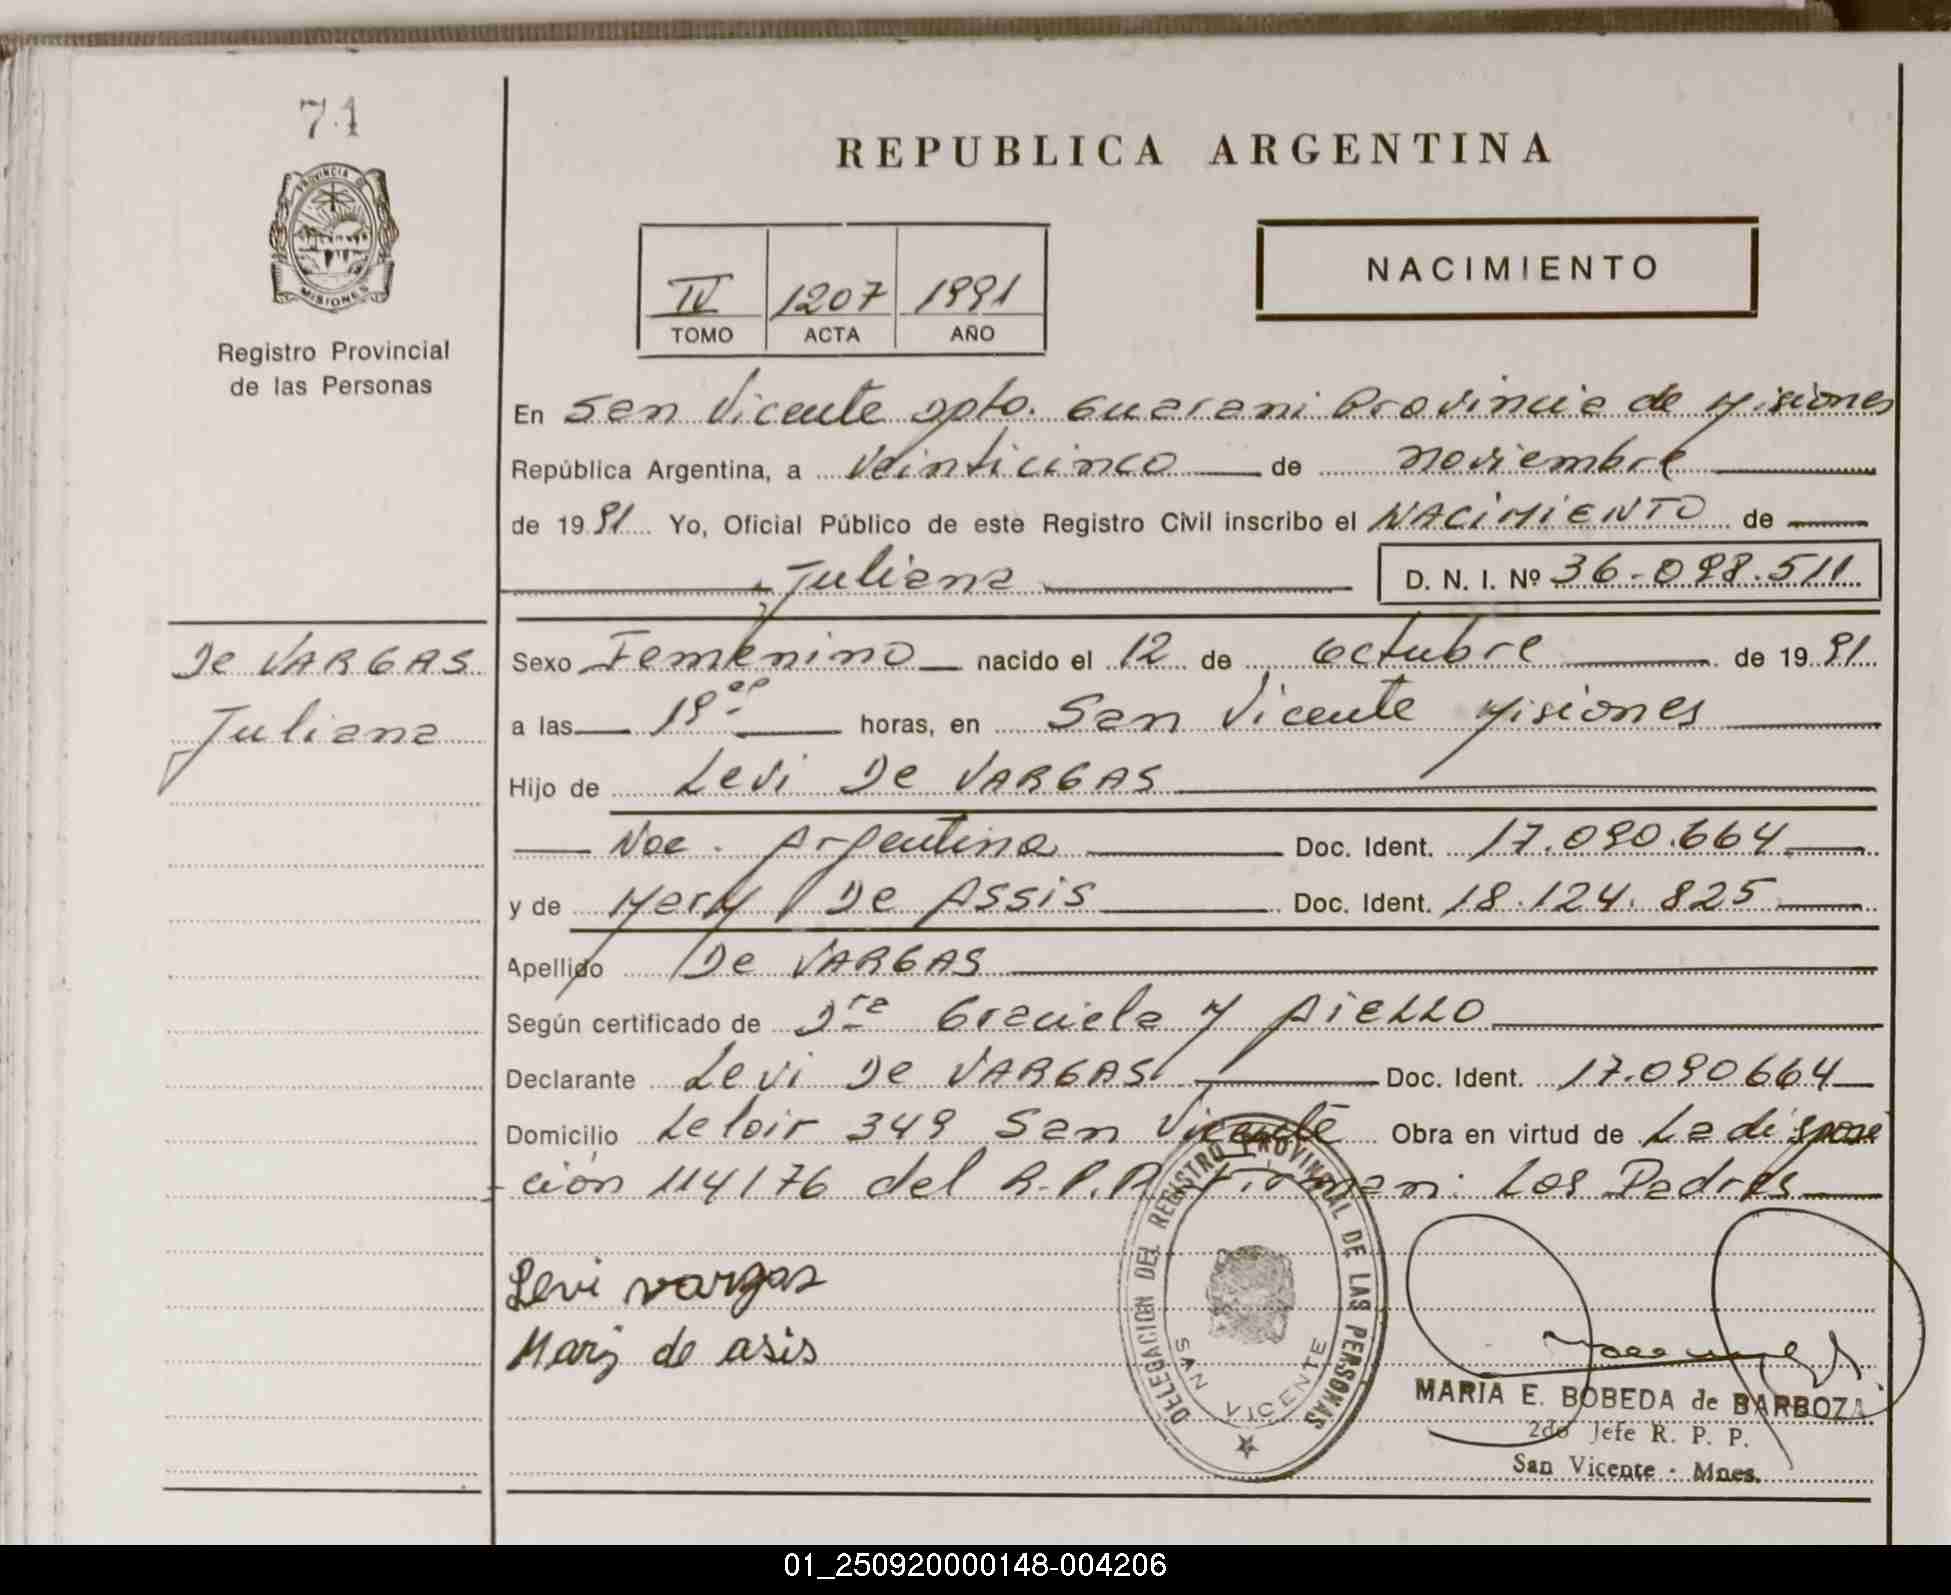 71
PROVINCIA DE
MISIONES
Registro Provincial
de las Personas
REPUBLICA ARGENTINA
IV 1207 1991
TOMO ACTA AÑO
NACIMIENTO
En San Vicente Dpto. Guarani Provincia de Misiones
República Argentina, a Veinticinco de noviembre
de 1991 Yo, Oficial Público de este Registro Civil inscribo el NACIMIENTO de
Juliana D. N. I. Nº 36.098.511
De VARGAS
Juliana
Sexo Femenino nacido el 12 de Octubre de 1991
a las 19 horas, en San Vicente Misiones
Hijo de Levi De VARGAS
Nac. Argentina Doc. Ident. 17.090.664
y de Mery De Assis Doc. Ident. 18.124.825
Apellido De VARGAS
Según certificado de Dra Graciela M Aiello
Declarante Levi De VARGAS Doc. Ident. 17.090664
Domicilio Leloir 349 San Vicente Obra en virtud de La disposi
ción 114/76 del R.P.P. Firman: Los Padres
Levi vargas
Mary de asis
DELEGACION DEL REGISTRO PROVINCIAL DE LAS PERSONAS
SAN VICENTE
MARIA E. BOBEDA de BARBOZA
2do Jefe R. P. P.
San Vicente - Mnes.
01_250920000148-004206